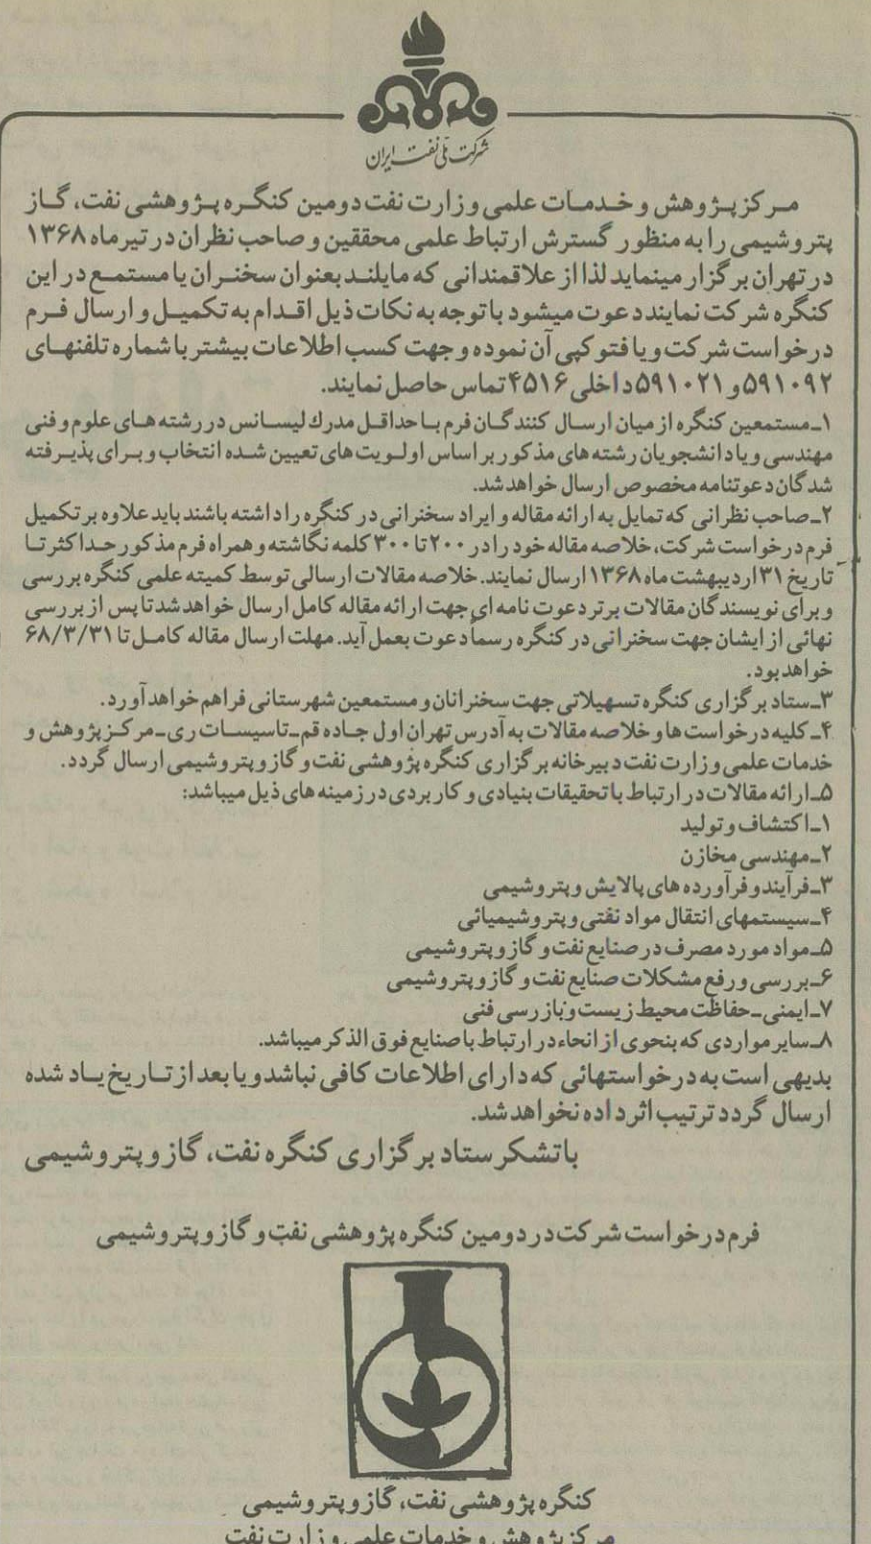 شرکت ملی نفت ایران
مرکز پژوهش و خدمات علمی وزارت نفت دومین کنگره پژوهشی نفت، گاز
پتروشیمی را به منظور گسترش ارتباط علمی محققین و صاحب نظران در تیرماه ۱۳۶۸
در تهران برگزار مینماید لذا از علاقمندانی که مایلند بعنوان سخنران یا مستمع در این
کنگره شرکت نمایند دعوت میشود با توجه به نکات ذیل اقدام به تکمیل و ارسال فرم
درخواست شرکت و یا فتوکپی آن نموده و جهت کسب اطلاعات بیشتر با شماره تلفنهای
۵۹۱۰۹۲ و ۵۹۱۰۲۱ داخلی ۴۵۱۶ تماس حاصل نمایند.
۱ـ مستمعین کنگره از میان ارسال کنندگان فرم با حداقل مدرك لیسانس در رشته های علوم و فنی
مهندسی و یا دانشجویان رشته های مذکور بر اساس اولویت های تعیین شده انتخاب و برای پذیرفته
شدگان دعوتنامه مخصوص ارسال خواهد شد.
۲ـ صاحب نظرانی که تمایل به ارائه مقاله و ایراد سخنرانی در کنگره را داشته باشند باید علاوه بر تکمیل
فرم درخواست شرکت، خلاصه مقاله خود را در ۲۰۰ تا ۳۰۰ کلمه نگاشته و همراه فرم مذکور حداکثر تا
تاریخ ۳۱ اردیبهشت ماه ۱۳۶۸ ارسال نمایند. خلاصه مقالات ارسالی توسط کمیته علمی کنگره بررسی
و برای نویسندگان مقالات برتر دعوت نامه ای جهت ارائه مقاله کامل ارسال خواهد شد تا پس از بررسی
نهائی از ایشان جهت سخنرانی در کنگره رسماً دعوت بعمل آید. مهلت ارسال مقاله کامل تا ۶۸/۳/۳۱
خواهد بود.
۳ـ ستاد برگزاری کنگره تسهیلاتی جهت سخنرانان و مستمعین شهرستانی فراهم خواهد آورد.
۴ـ کلیه درخواست ها و خلاصه مقالات به آدرس تهران اول جاده قم ـ تاسیسات ری ـ مرکز پژوهش و
خدمات علمی وزارت نفت دبیرخانه برگزاری کنگره پژوهشی نفت و گاز و پتروشیمی ارسال گردد.
۵ـ ارائه مقالات در ارتباط با تحقیقات بنیادی و کاربردی در زمینه های ذیل میباشد:
۱ـ اکتشاف و تولید
۲ـ مهندسی مخازن
۳ـ فرآیند و فرآورده های پالایش و پتروشیمی
۴ـ سیستمهای انتقال مواد نفتی و پتروشیمیائی
۵ـ مواد مورد مصرف در صنایع نفت و گاز و پتروشیمی
۶ـ بررسی و رفع مشکلات صنایع نفت و گاز و پتروشیمی
۷ـ ایمنی ـ حفاظت محیط زیست و بازرسی فنی
۸ـ سایر مواردی که بنحوی از انحاء در ارتباط با صنایع فوق الذکر میباشد.
بدیهی است به درخواستهائی که دارای اطلاعات کافی نباشد و یا بعد از تاریخ یاد شده
ارسال گردد ترتیب اثر داده نخواهد شد.
با تشکر ستاد برگزاری کنگره نفت، گاز و پتروشیمی
فرم درخواست شرکت در دومین کنگره پژوهشی نفت و گاز و پتروشیمی
کنگره پژوهشی نفت، گاز و پتروشیمی
مرکز پژوهش و خدمات علمی وزارت نفت